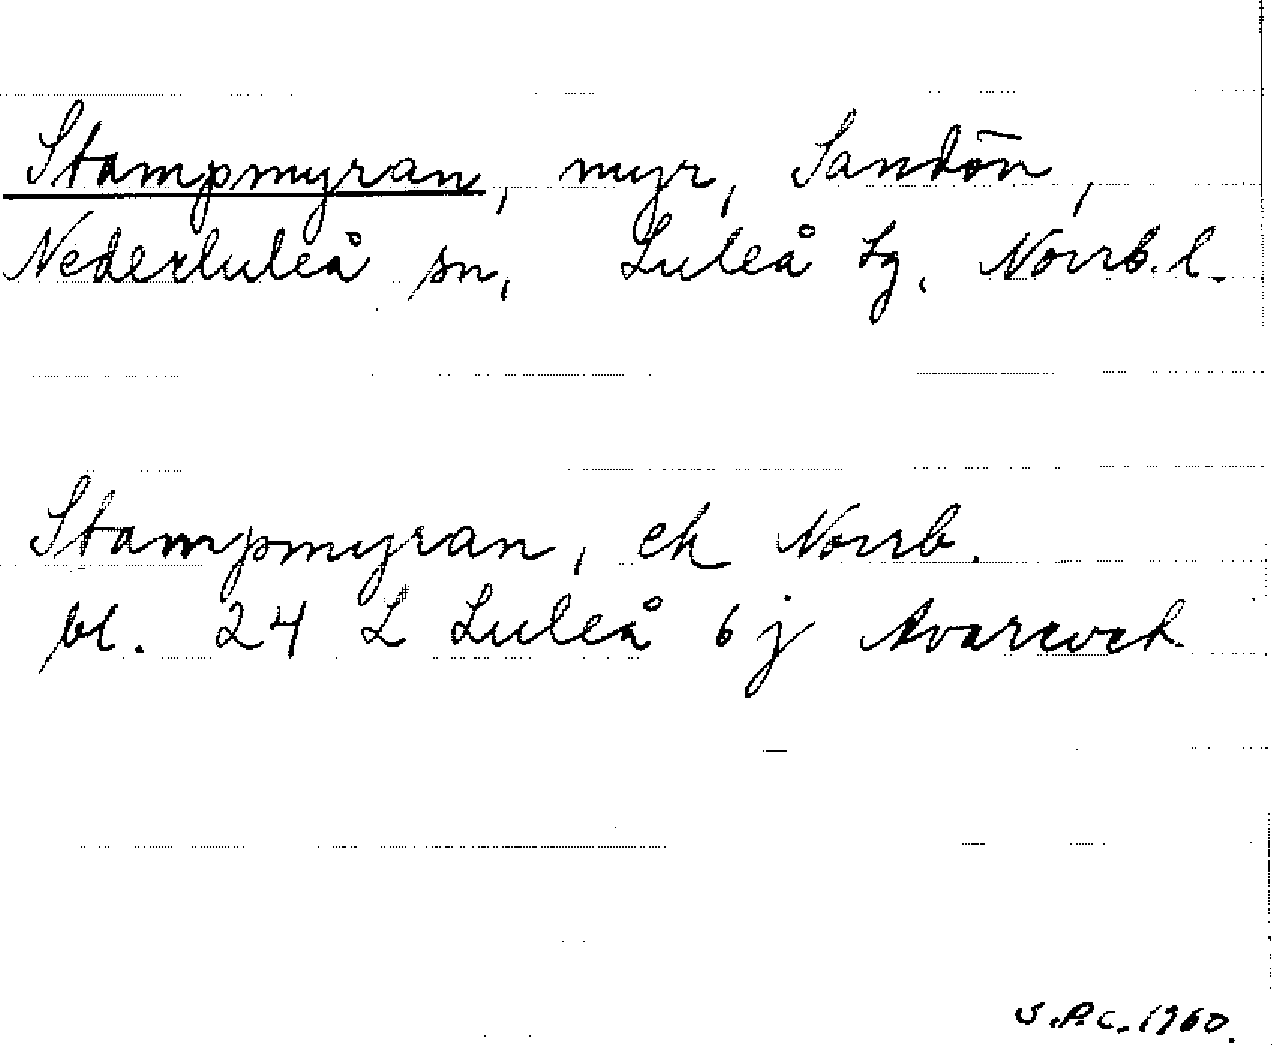 Stampmyran, myr, Sandön,
Nederluleå sn, Luleå tg, Norrb. l.
Stampmyran, ek Norrb.
bl. 24 L Luleå 6 j
S.P.C. 1960.